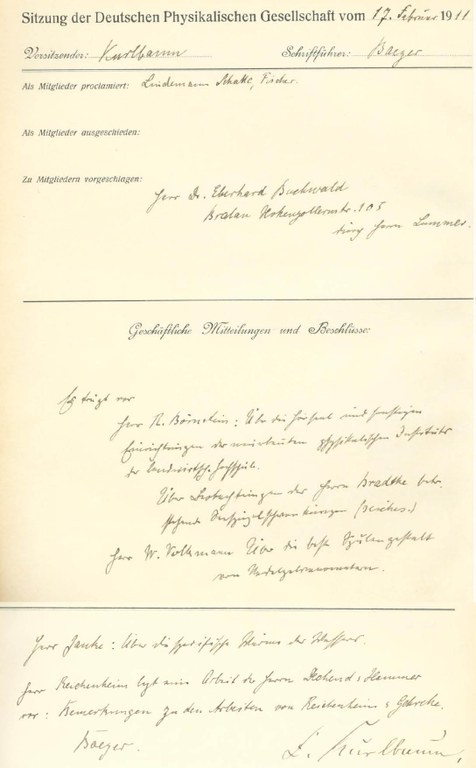 Sitzung der Deutschen Physikalischen Gesellschaft vom 17. Februar 1911
Vorsitzender: Kurlbaum Schriftführer: Baeger
Als Mitglieder proclamiert: Lindemann
Als Mitglieder ausgeschieden:
Zu Mitgliedern vorgeschlagen:
Herr Dr. Eberhard Buchwald
Breslau Hohenzollernstr. 105
durch Herrn Lummer.
Geschäftliche Mitteilungen und Beschlüsse:
Es trägt vor
Herr R. Börnstein: Über die Hörsaal und sonstigen
Einrichtungen des physikalischen Instituts
der landwirtsch. Hochschule.
Über Beobachtungen des Herrn
Herr W. Volkmann Über die beste Spulengestalt
von Nadelgalvanometern.
Herr Janke: Über die spezifische Wärme des Wassers.
Herr Reichenheim legt eine Arbeit der Herrn Dechend & Hammer
vor: Bemerkungen zu den Arbeiten von Reichenheim & Gehrcke.
Baeger. Kurlbaum.